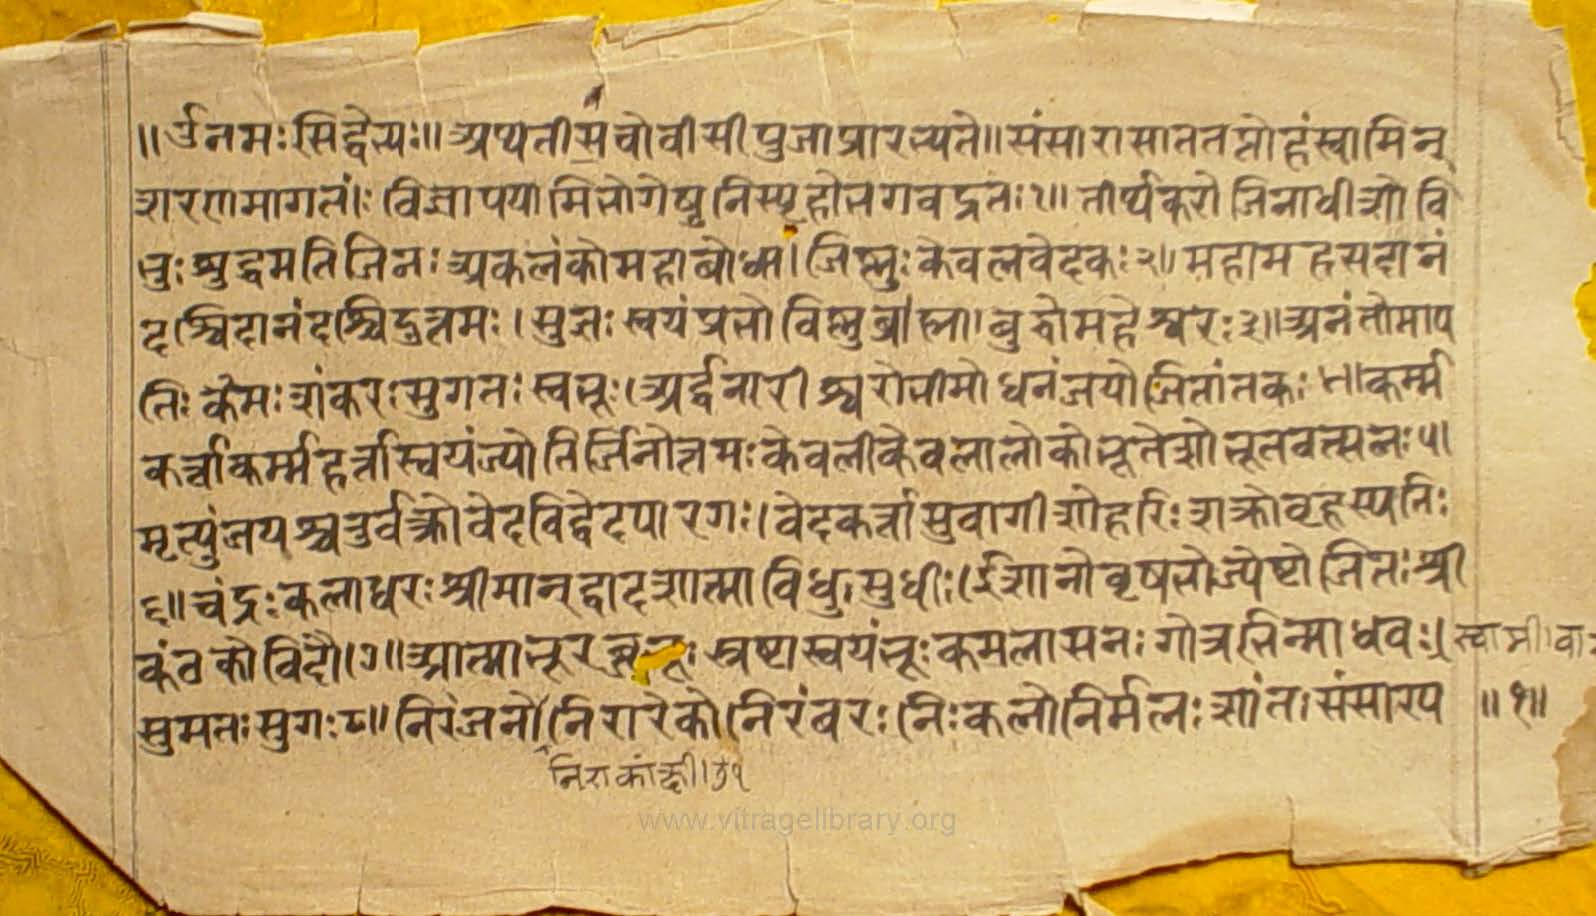 ॥ र्उनमः सिद्धेभ्यः॥ अथ तीस चोवीसी पुजा प्रारभ्यते॥ संसारासाततप्तोहं स्वामिन्
शरणमागतंः विज्ञापयामि भोगेषु निस्पृहो भगवद्व्रतः १॥ तीर्थंकरो जिनाधीशो वि
भुः शुद्धमति जिनः अकलंको महाबोधा। जिष्णुः केवलवेदकः २॥ महामहसदानं
दश्चिदानंदश्चिदुत्तमः। सुजः स्वयंप्रभो विष्णुर्ब्रह्मा। बुद्धो महेश्वरः ३॥ अनंतोमाप
तिः कैमः शंकरः सुगतः स्वभूः। अर्द्धनारीश्वरो भीमो धनंजयो जितांतकः ४। कर्म्म
कर्त्ता कर्म्महर्त्ता स्वयंज्योतिर्जिनोत्तमः केवली केवलालोको भूतेशो भूतवत्सलः ५।
मृत्युंजयश्चतुर्वक्त्रो वेदविद्वेदपारगः। वेदकर्त्ता सुवागीशो हरिः शक्रो वृहस्पतिः
६॥ चंद्रः कलाधरः श्रीमान् द्वादशात्मा विधु। सुधीः। ईशानो वृषभो ज्येष्टो जितः श्री
कंठ कोविदौ। ७॥ आत्माभूर स्रष्टा स्वयंभूः कमलासनः गोत्रभिन्माधवः। स्वामी। वा
सुमतः सुगः ८॥ निरंजनो निरारेको निरंवरः निःकलो निर्मलः शांतः संसारप ॥ १॥
निराकांक्षी।
www.vitragelibrary.org